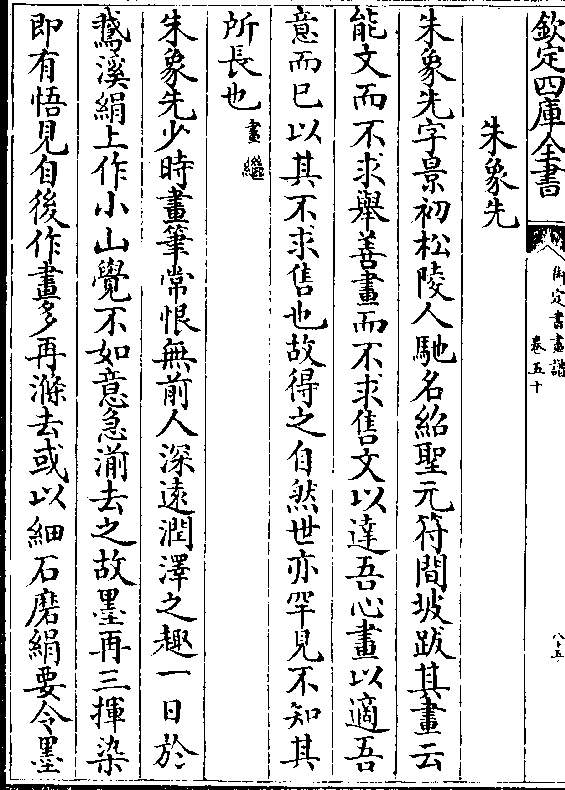 欽定四庫全書
御定書畫譜
卷五十
八十五
朱象先
朱象先字景初松陵人馳名紹聖元符間坡跋其畫云
能文而不求舉善畫而不求售文以達吾心畫以適吾
意而已以其不求售也故得之自然世亦罕見不知其
所長也畫繼
朱象先少時畫筆常恨無前人深遠潤澤之趣一日於
鵞溪絹上作小山覺不如意急湔去之故墨再三揮染
即有悟見自後作畫多再滌去或以細石磨絹要令墨